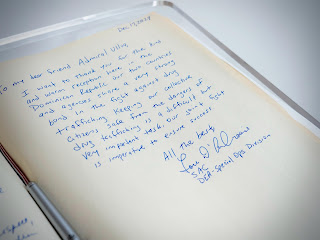 Dec 13, 2024
To my dear friend Admiral Ulloa,
I want to thank you for the kind
and warm reception here in the
Dominican Republic. Our two countries
and agencies share a very strong
bond in the fight against drug
trafficking. Keeping our collective
citizens safe from the dangers of
drug trafficking is a difficult but
very important task. Our joint fight
is imperative to ensure success.
All the best,
SAC
DEA-Special Ops Division